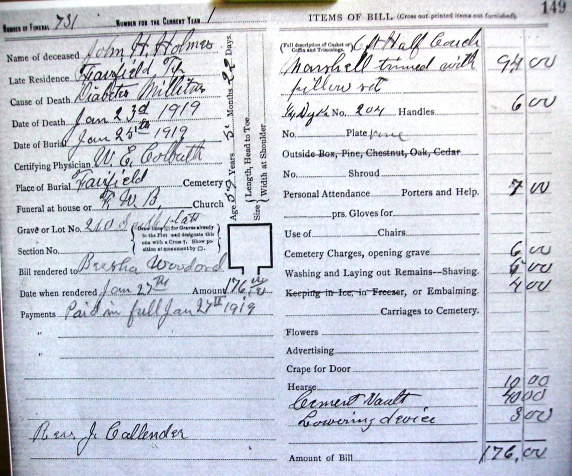 149
NUMBER OF FUNERAL 731 NUMBER FOR THE CURRENT YEAR 1
Name of deceased John H. Holmes
Late Residence Fairfield
Cause of Death Diabetes Millitus
Date of Death Jan 23d 1919
Date of Burial Jan 25th 1919
Certifying Physician W. E. Colbath
Place of Burial Fairfield Cemetery
Funeral at house or R. W. B. Church
Grave or Lot No. 240
(Draw lines for Graves already in the Plot and designate this one with a Cross †. Show position of monument by □.)
Section No.
Bill rendered to Bertha Woodard
Date when rendered Jan 27th Amount 176.00
Payments Paid in full Jan 27th 1919
"
"
Rev J. Callender
Age Years Months Days
Size { Length, Head to Toe
Width at Shoulder
ITEMS OF BILL (Gross out printed items not furnished)
(Full description of Casket or Coffin and Trimmings) Half Couch
Marshell trimed with 94 00
pillow
No. 204 Handles 6 00
No. Plate
Outside Box, Pine, Chestnut, Oak, Cedar
No. Shroud
Personal Attendance Porters and Help. 7 00
prs. Gloves for
Use of Chairs.
Cemetery Charges, opening grave 6 00
Washing and Laying out Remains--Shaving. 00
Keeping in Ice, in Freezer, or Embalming. 4 00
Carriages to Cemetery.
Flowers
Advertising
Crape for Door
Hearse 10 00
Cement Vault 40 00
Lowering device 3 00
Amount of Bill 176.00